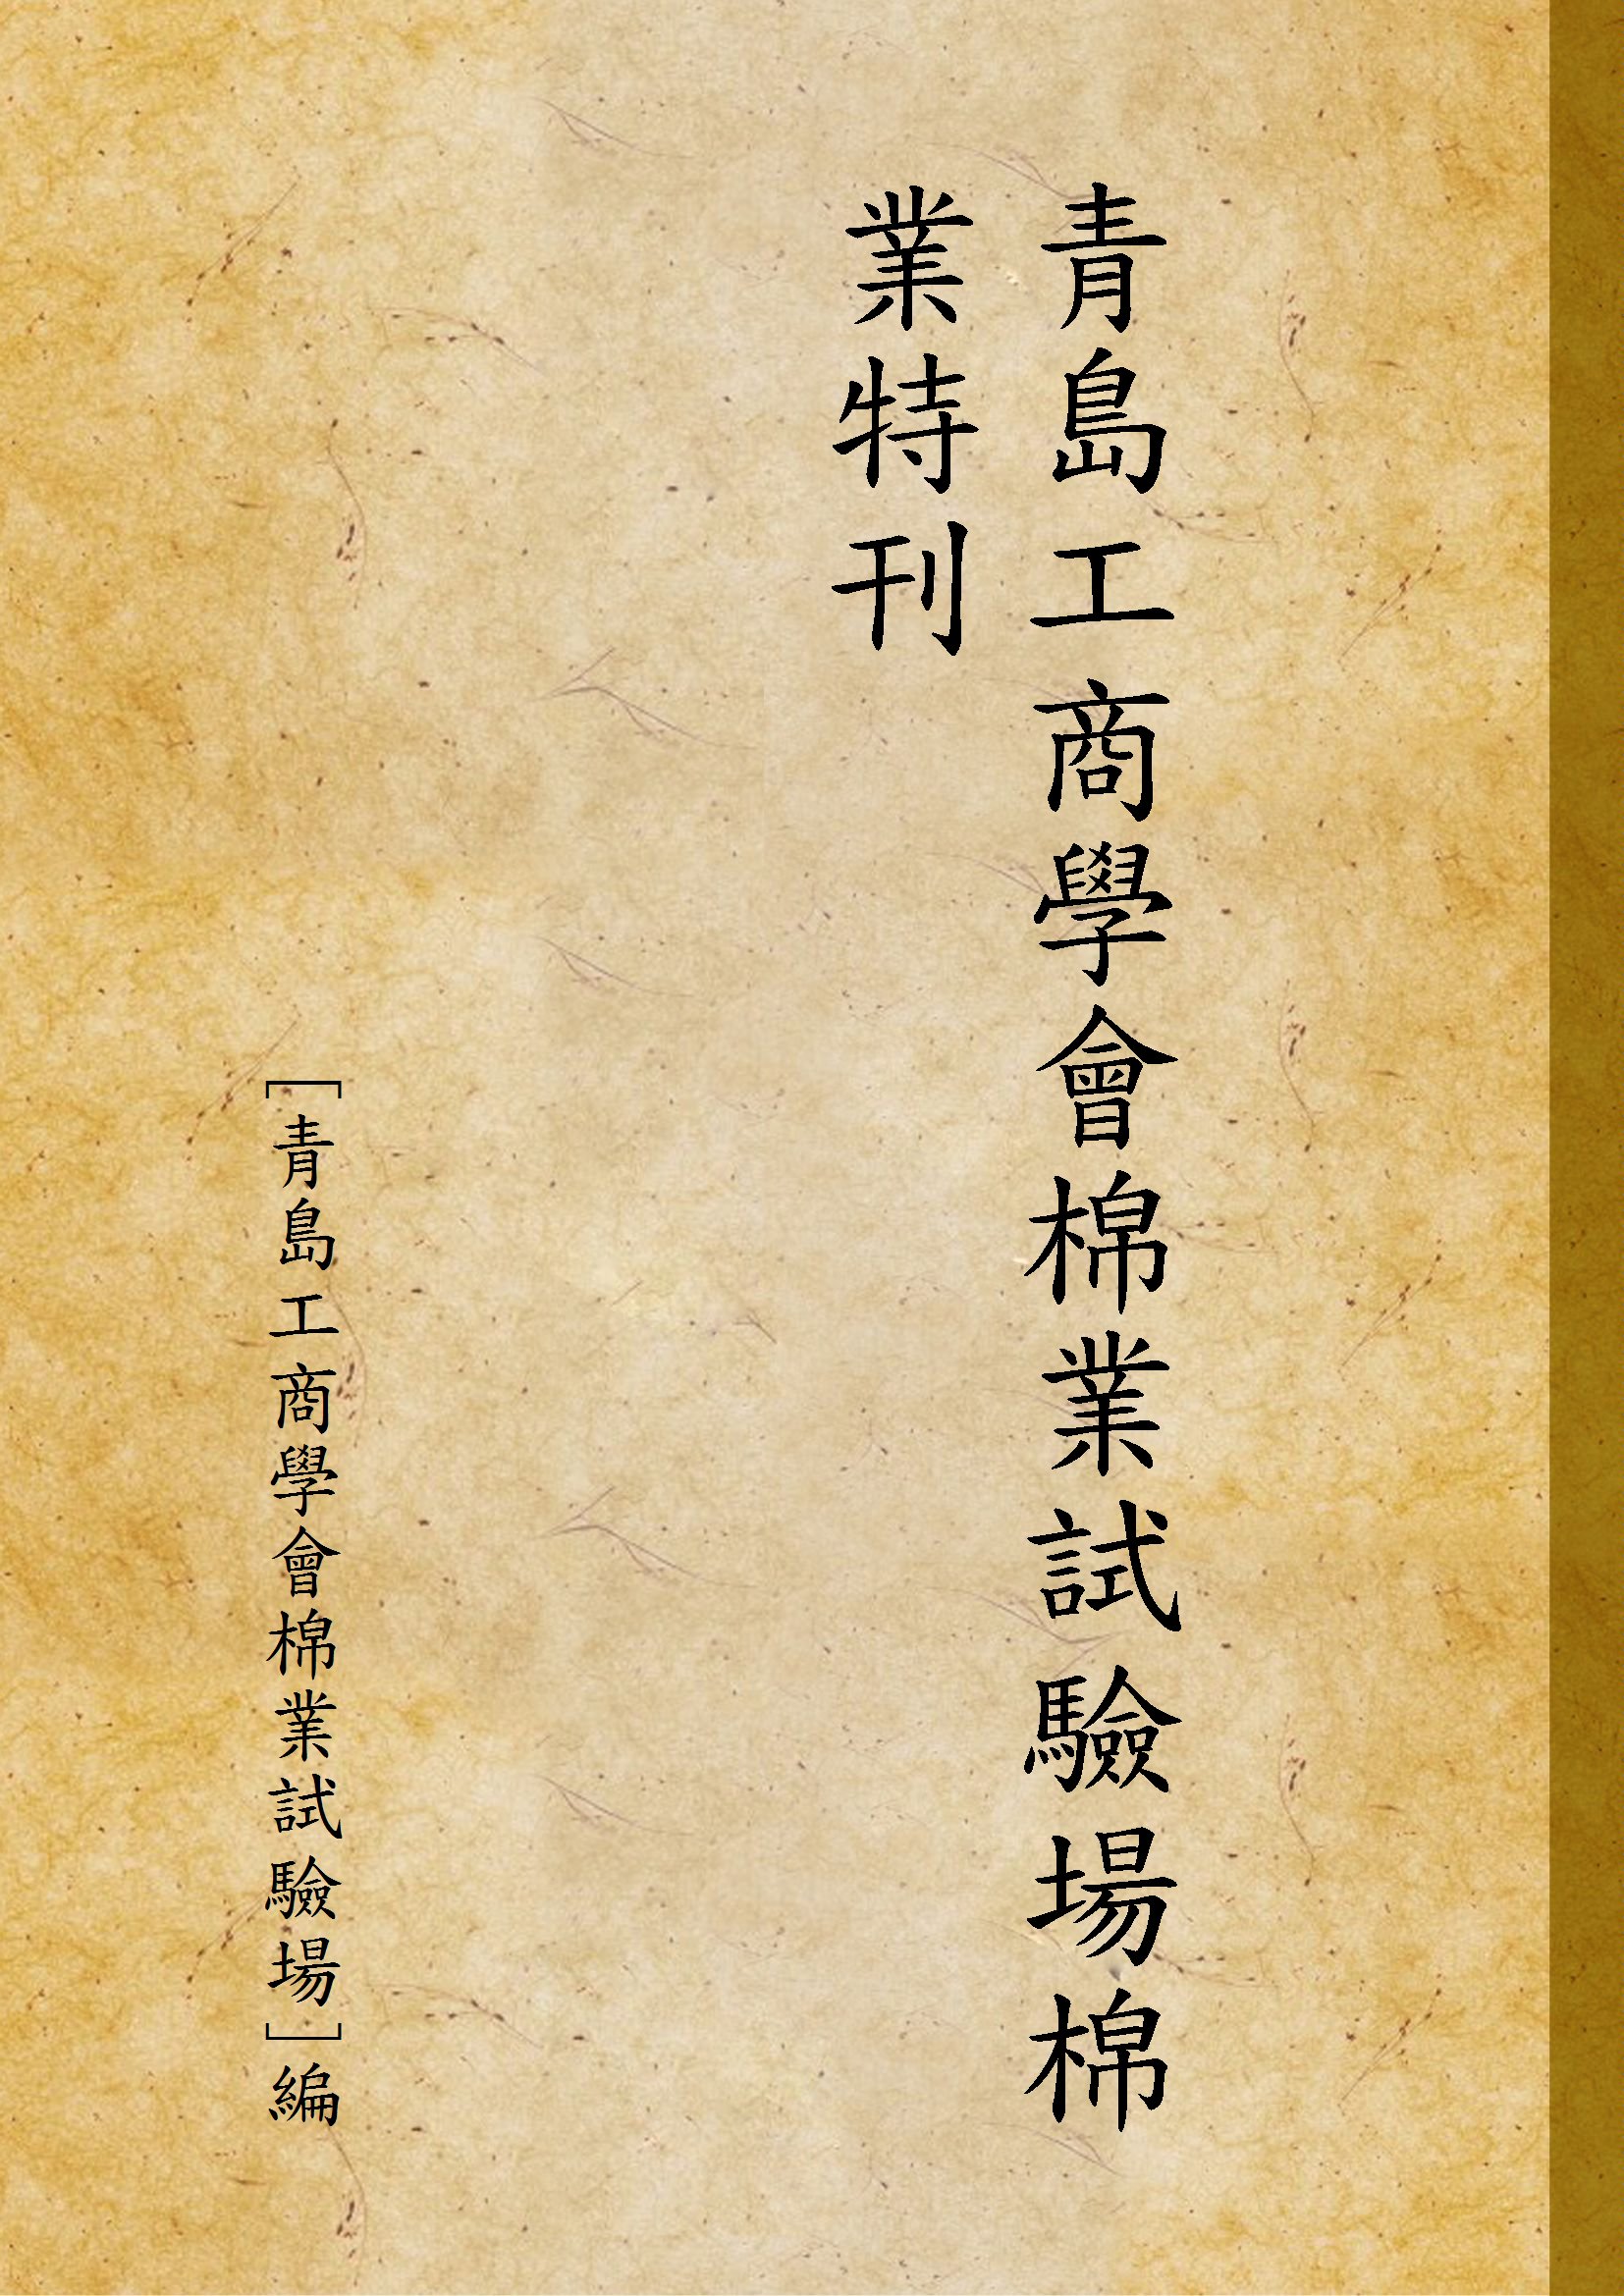 青島工商學會棉業試驗場棉
業特刊
[青島工商學會棉業試驗場]編